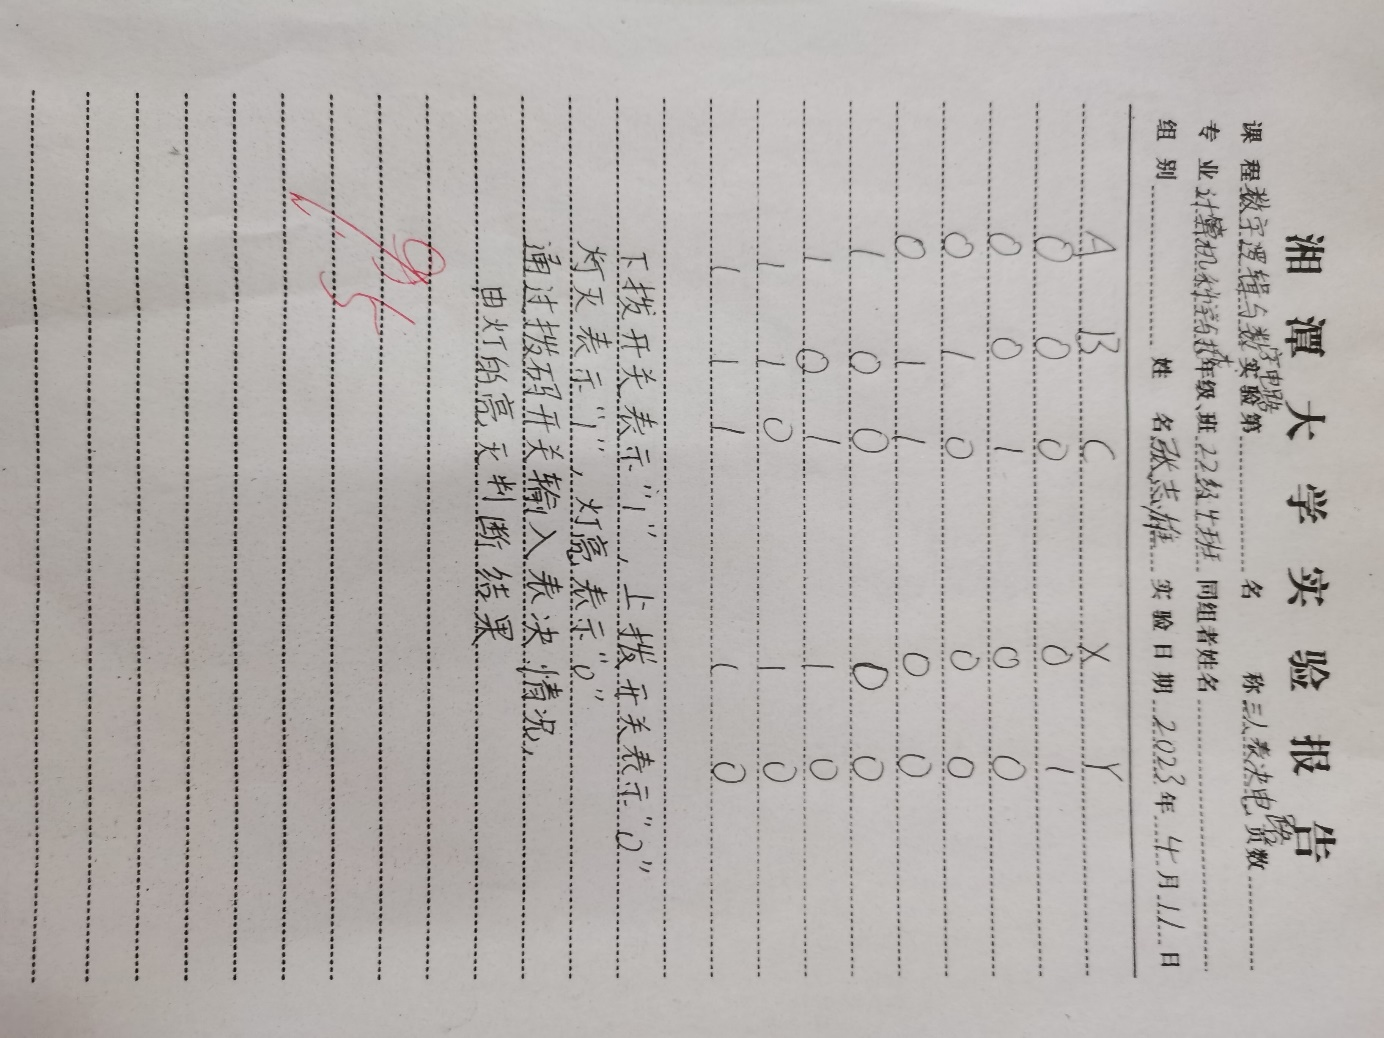 湘潭大学实验报告
课程数字逻辑与数字电路实验第 名称三人表决电路页数
专业计算机科学与技术年级、班22级1班同组者姓名
组别 姓名张志雄 实验日期2023年4月11日
A B C X Y
0 0 0 0 1
0 0 1 0 0
0 1 0 0 0
0 1 1 0 0
1 0 0 0 0
1 0 1 1 0
1 1 0 1 0
1 1 1 1 0
下拨开关表示"1",上拨开关表示"0"
灯灭表示"1",灯亮表示"0"
通过拨码开关输入表决情况,
由灯的亮灭判断结果
95